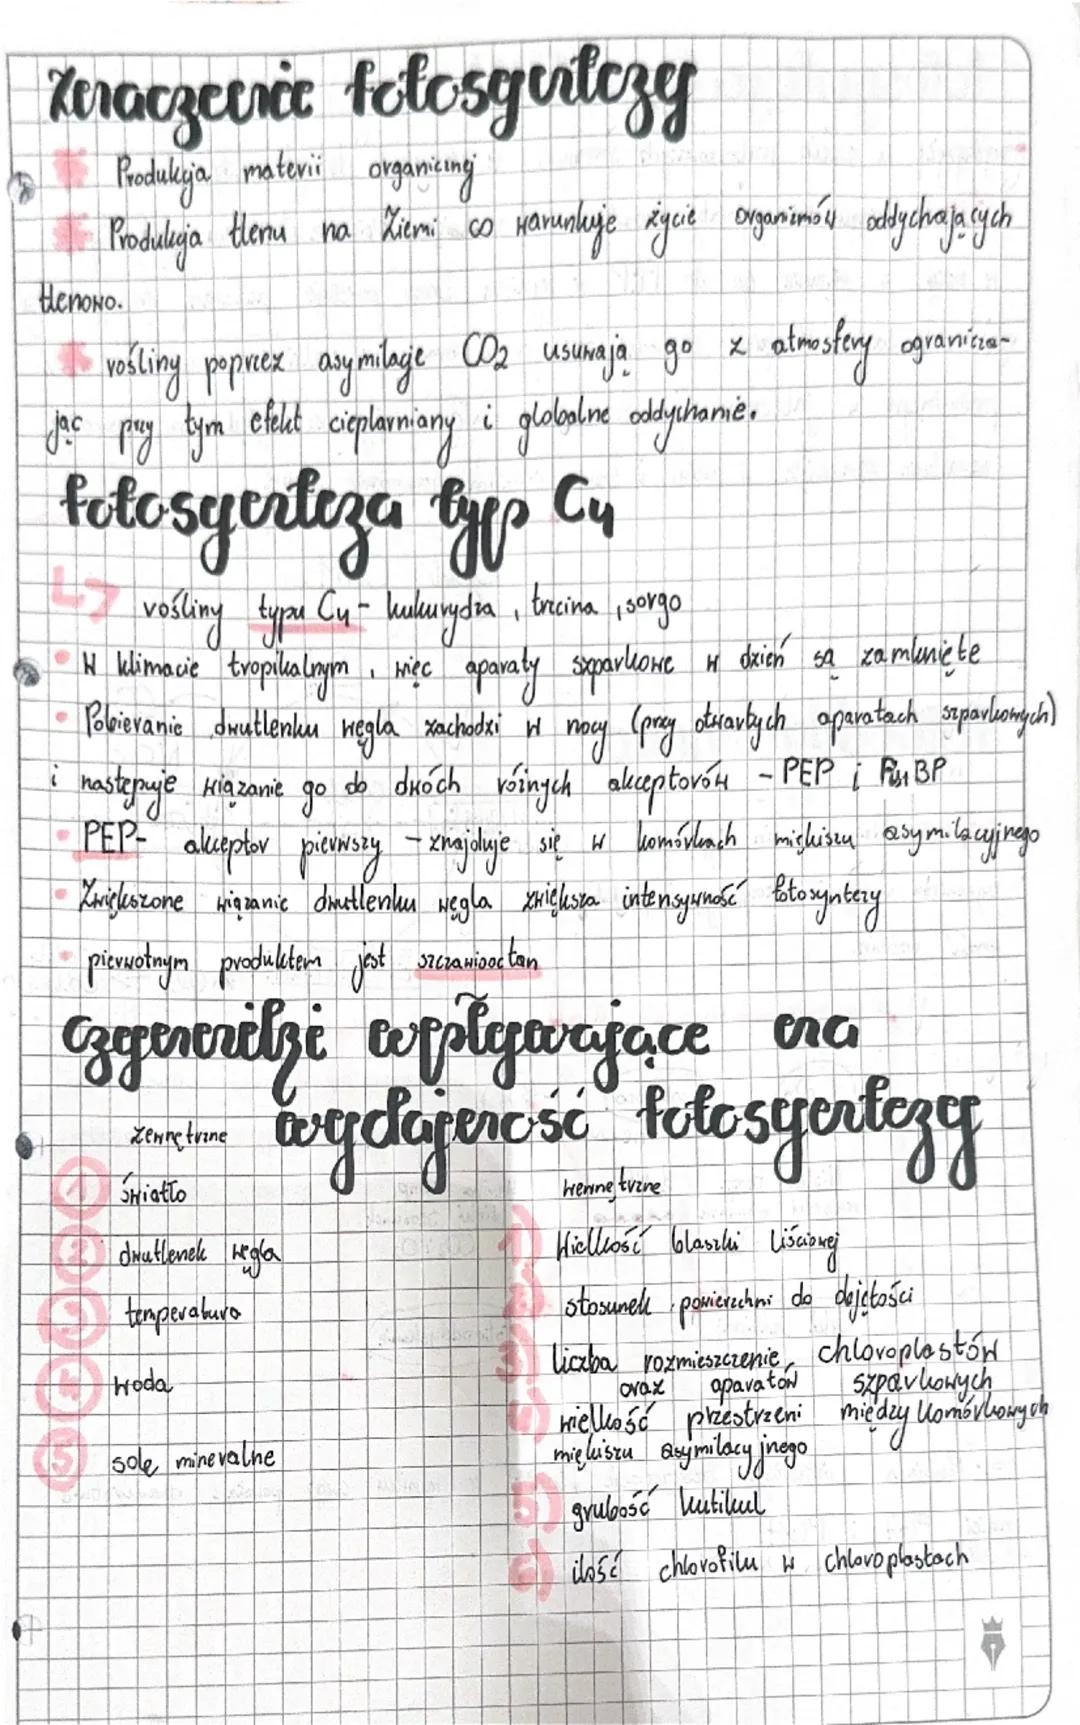 Znaczenie fotosyntezy
Produkcja materii organicznej
Produkcja tlenu na Ziemi co warunkuje życie organizmów oddychających
tlenowo.
rośliny poprzez asymilacje CO2 usuwają go z atmosfery ogranicza-
jąc przy tym efekt cieplarniany i globalne oddychanie.
fotosynteza typ C4
rośliny typu C4 - kukurydza, trzcina, sorgo
W klimacie tropikalnym, więc aparaty szparkowe w dzień są zamknięte
Pobieranie dwutlenku węgla zachodzi w nocy (przy otwartych aparatach szparkowych)
i następuje wiązanie go do dwóch różnych akceptorów - PEP i RuBP
PEP- akceptor pierwszy - znajduje się w komórkach miękiszu asymilacyjnego
Zwiększone wiązanie dwutlenku węgla zwiększa intensywność fotosyntezy
pierwotnym produktem jest szczawiooctan
czynniki wpływające na
wydajność fotosyntezy
zewnętrzne
wewnętrzne
1 światło
1) Wielkość blaszki liściowej
2 dwutlenek węgla
2) stosunek powierzchni do objętości
3 temperatura
3) liczba rozmieszczenie chloroplastów
oraz aparatów szparkowych
4 woda
4) wielkość przestrzeni między komórkowych
miękiszu asymilacyjnego
5 sole mineralne
5) grubość kutikul
6) ilość chlorofilu w chloroplastach